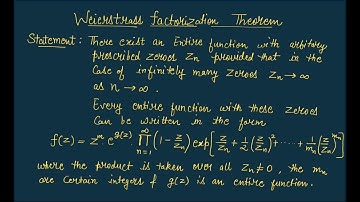 Weierstrass Factorization Theorem
Statement: There exist an Entire function with arbitary
prescribed zeroes Zn provided that in the
Case of infinitely many zeroes Zn → ∞
as n → ∞.
Every entire function with these zeroes
Can be written in the form
f(z) = z^m e^{g(z)} ∏_{n=1}^{∞} (1 - z/zn) exp[z/zn + 1/2 (z/zn)^2 + ..... + 1/mn (z/zn)^{mn}]
where the product is taken over all Zn ≠ 0, the mn
are Certain integers & g(z) is an entire function.